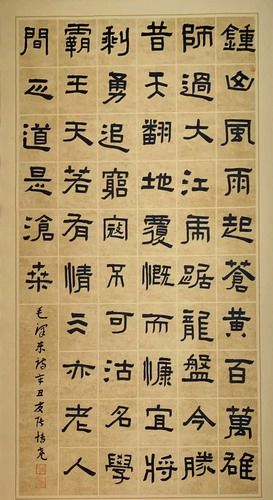 鍾山風雨起蒼黃百萬雄
師過大江虎踞龍盤今勝
昔天翻地覆慨而慷宜將
剩勇追窮寇不可沽名學
霸王天若有情天亦老人
間正道是滄桑
毛澤东詩辛丑